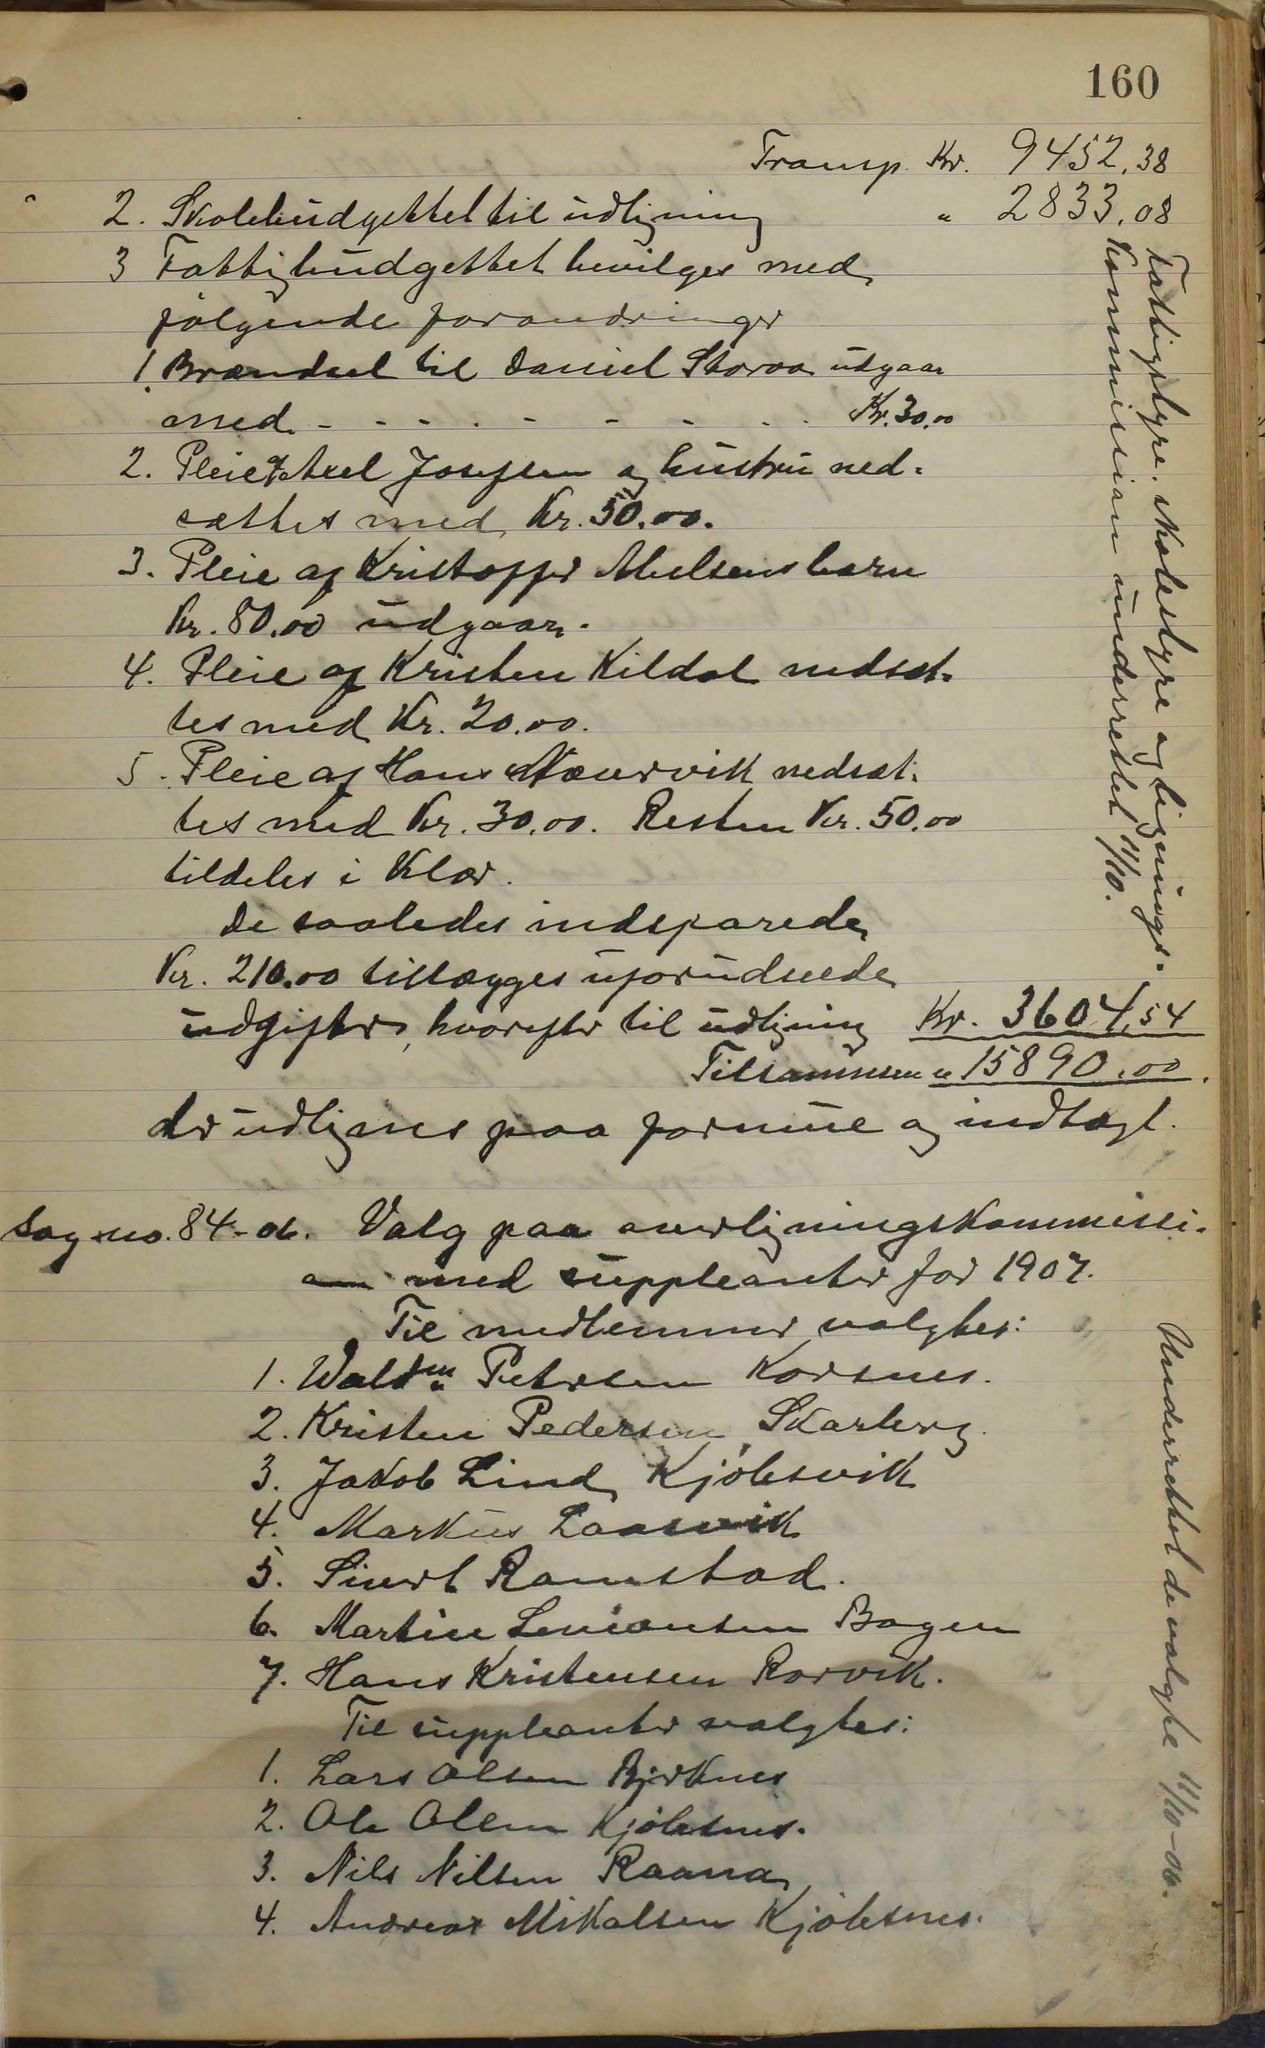 160
Transp. Kr. 9452,38
2. Skolebudgettet til udligning " 2833,08
3 Fattigbudgettet bevilges med
følgende forandringer
1. Brændsel til Daniel Storaa udgaar
med - - - - - - - - Kr. 30,00
2. Pleie af Axel Josefsen og hustru ned-
sættes med Kr. 50,00.
3. Pleie af Kristoffer Nielsens barn
Kr. 80,00 udgaar.
4. Pleie af Kristen Kildal nedsæt-
tes med Kr. 20,00.
5. Pleie af Hans Næurvik nedsæt-
tes med Kr. 30,00. Resten Kr. 50,00
tildeles i Klær.
De saaledes indsparede
Kr. 210,00 tillægges uforudseede
udgifter, hvorefter til udligning Kr. 3604,54
Tilsammen " 15890,00.
der udlignes paa formue og indtægt.
Fattigstyre. Skolestyre og lignings-
kommission underrettet 11/10.
Sag no. 84-06. Valg paa overligningskommissi-
on med suppleanter for 1907.
Til medlemmer valgtes:
1. Waldm. Petersen Korsnes.
2. Kristen Pedersen Skarberg.
3. Jakob Lind Kjöbsvik
4. Markus Laasvik
5. Sivert Ramstad.
6. Martin Benjaminsen Bogen
7. Hans Kristensen Rørvik.
Til suppleanter valgtes:
1. Lars Olsen Birknes
2. Ole Olsen Kjöbsnes.
3. Nils Nilsen Raana
4. Andreas Mikalsen Kjöbsnes.
Underrettet de valgte 11/10-06.